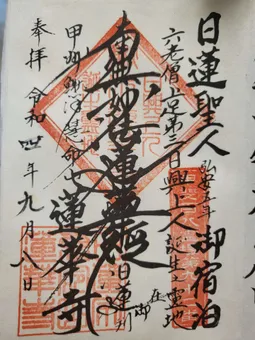 日蓮聖人 弘安五年 御宿泊
六老僧上足第二日興上人誕生之霊地
南無妙法蓮華経
日蓮 在御判
甲州鰍沢
蓮華寺
奉拝 令和四年九月八日